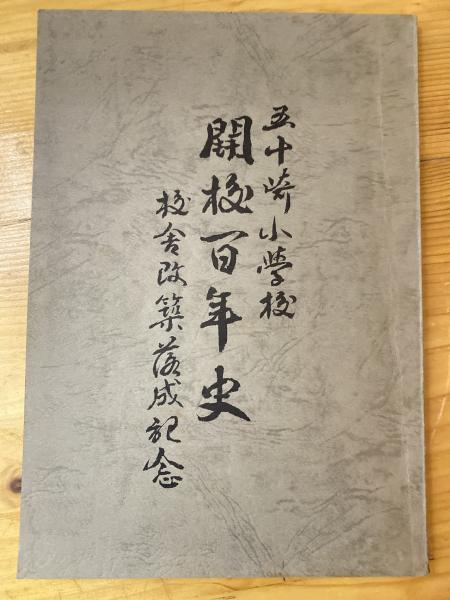 五十崎小學校
開校百年史
校舎改築落成記念